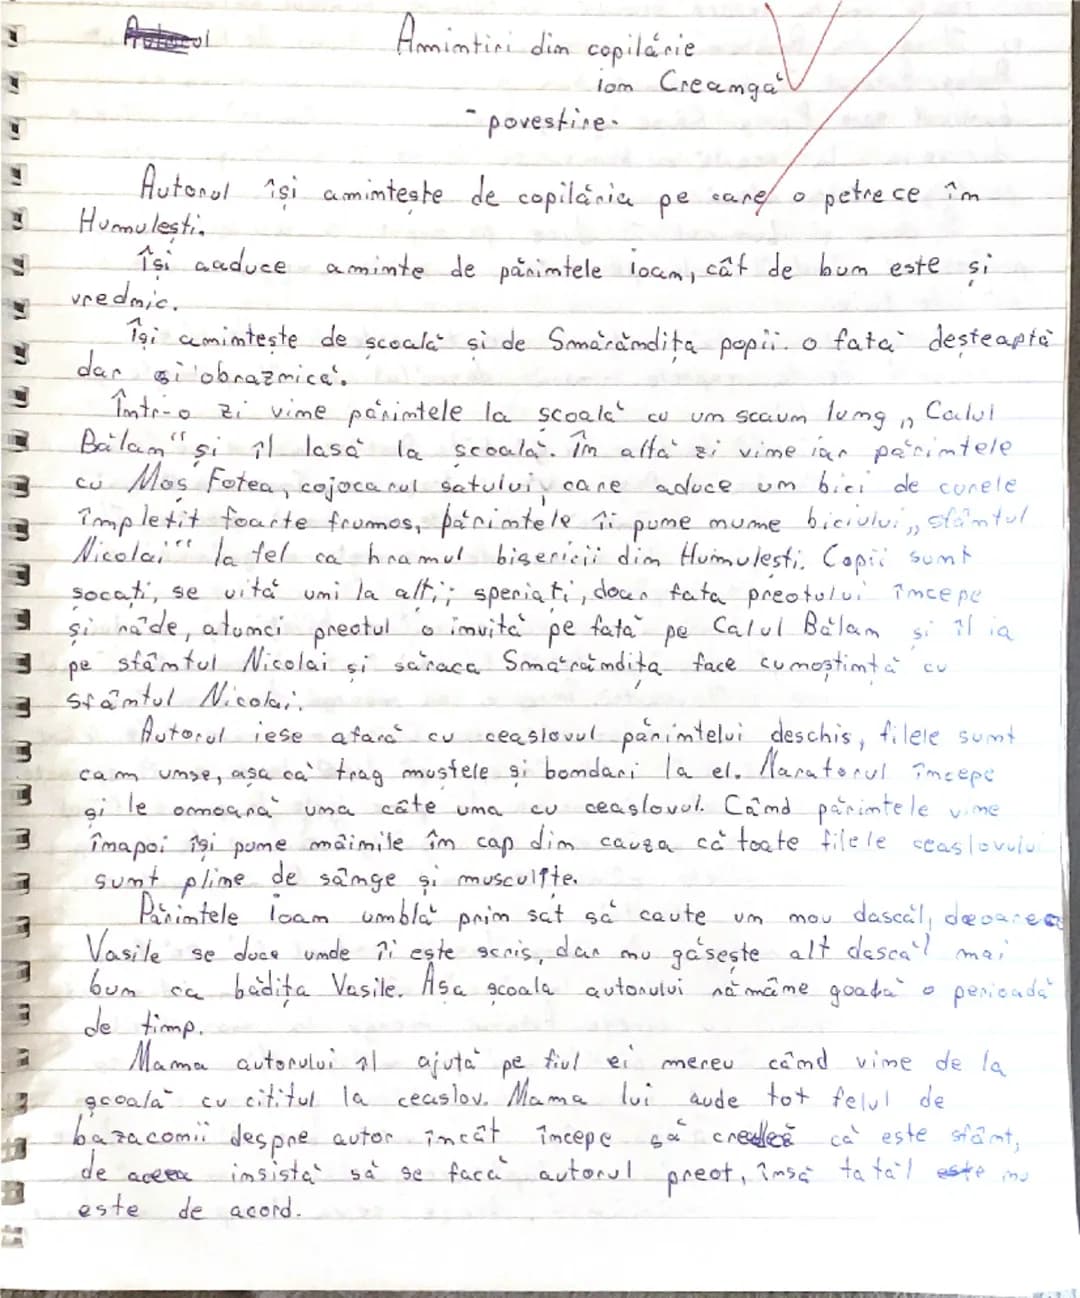 Amintiri din copilărie
Ion Creangă
- povestire -
Autorul își amintește de copilăria pe care o petrece în
Humulești.
Își aaduce aminte de părintele Ioan, cât de bun este și
vrednic.
Își amintește de școală și de Smărăndița popii. o fată deșteaptă
dar și obraznică.
Într-o zi vine părintele la școală cu un scaun lung „Calul
Bălan" și îl lasă la școală. În altă zi vine iar părintele
cu Moș Fotea, cojocarul satului, care aduce un bici de curele
împletit foarte frumos, părintele îi pune nume biciului „sfântul
Nicolai" la fel ca hramul bisericii din Humulești. Copii sunt
șocați, se uită uni la alți; speriați, doar fata preotului începe
și râde, atunci preotul o invită pe fată pe Calul Bălan și îl ia
pe sfântul Nicolai și săraca Smărăndița face cunoștință cu
sfântul Nicolai.
Autorul iese afară cu ceaslovul părintelui deschis, filele sunt
cam unse, așa că trag muștele și bondari la el. Naratorul începe
și le omoară una câte una cu ceaslovul. Când părintele vine
înapoi își pune mâinile în cap din cauza că toate filele ceaslovului
sunt pline de sânge și musculițe.
Părintele Ioan umblă prin sat să caute un nou dascăl, deoarece
Vasile se duce unde îi este scris, dar nu găsește alt dascăl mai
bun ca bădița Vasile. Așa școala autorului rămâne goală o perioadă
de timp.
Mama autorului îl ajută pe fiul ei mereu când vine de la
școală cu cititul la ceaslov. Mama lui aude tot felul de
bazaconii despre autor încât începe să creadă că este sfânt,
de aceea insistă să se facă autorul preot, însă tatăl nu
este de acord.